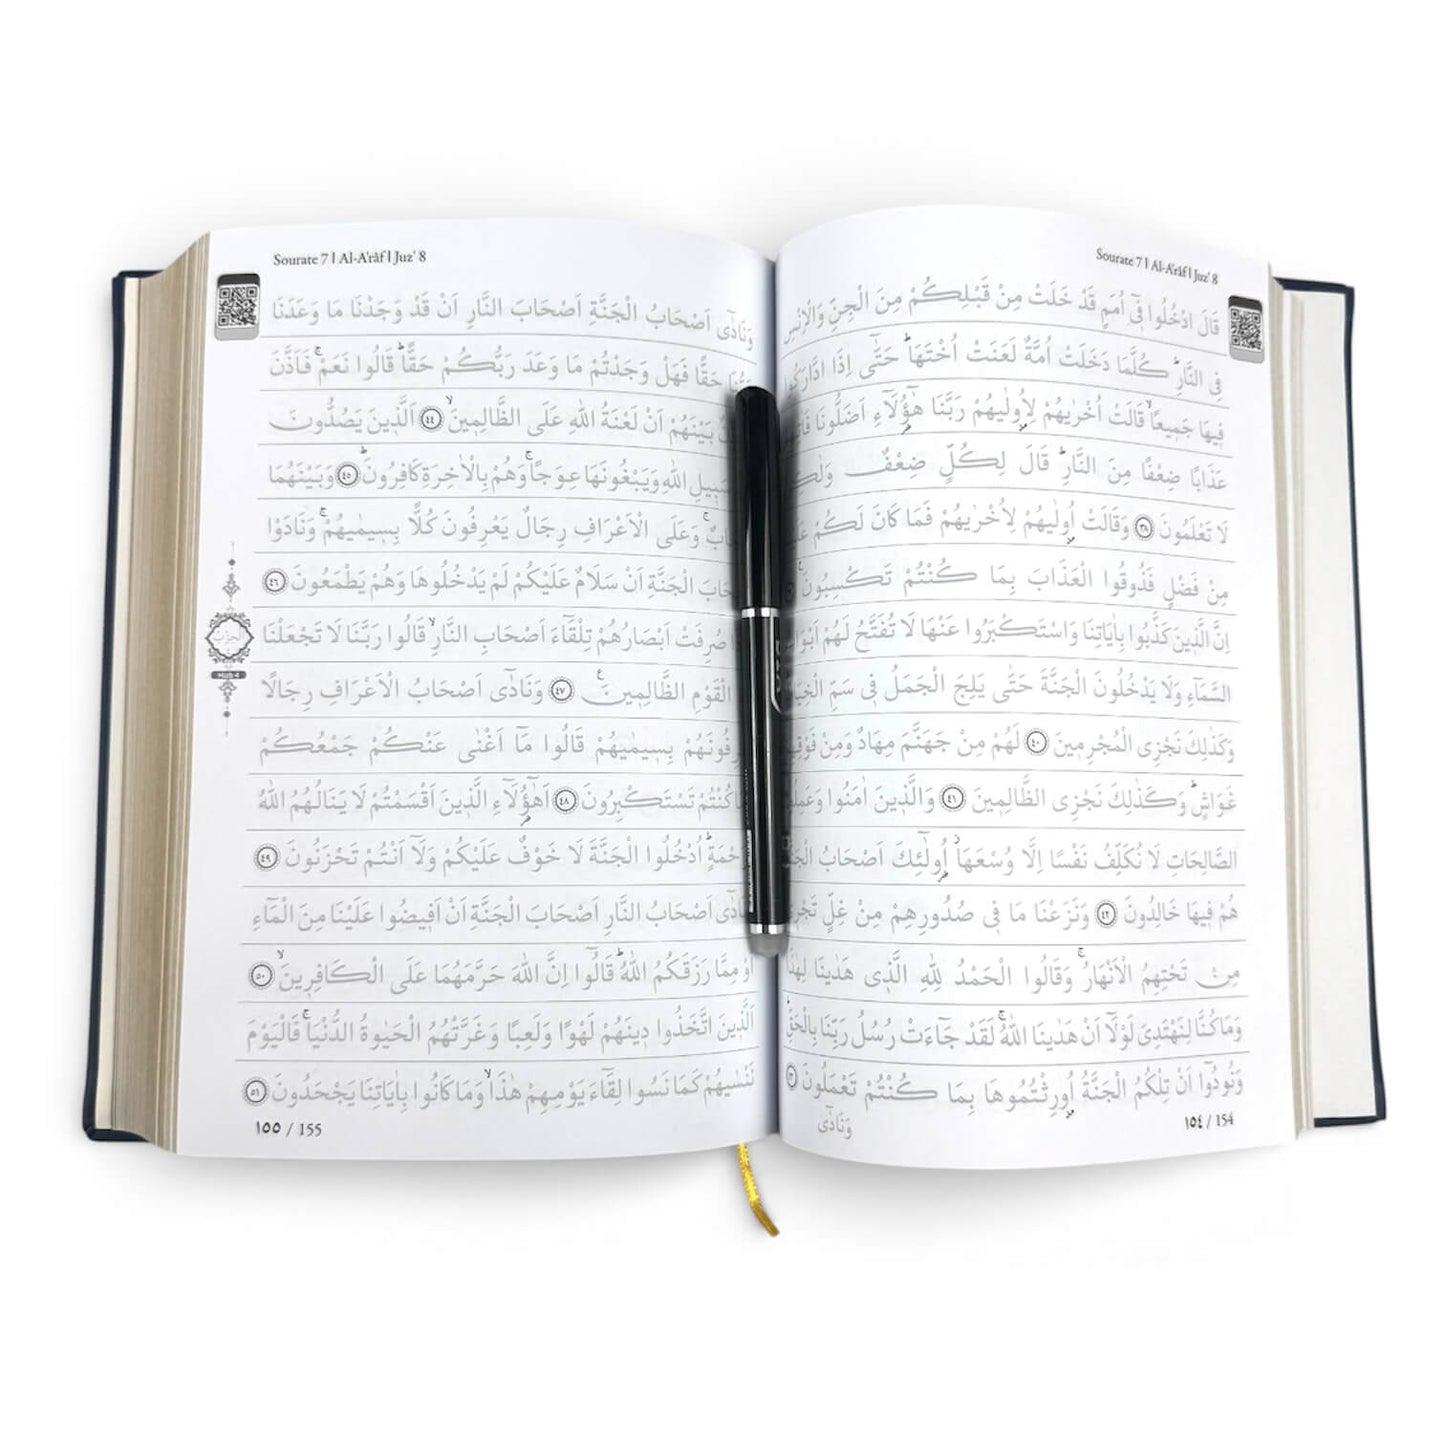 Sourate 7 | Al-A'râf | Juz' 8
قَالَ ادْخُلُوا فٖٓى اُمَمٍ قَدْ خَلَتْ مِنْ قَبْلِكُمْ مِنَ الْجِنِّ وَالْاِنْسِ
فِى النَّارِؕ كُلَّمَا دَخَلَتْ اُمَّةٌ لَعَنَتْ اُخْتَهَاؕ حَتّٰٓى اِذَا ادَّارَكُوا
فٖيهَا جَمٖيعًاۙ قَالَتْ اُخْرٰيهُمْ لِاُولٰيهُمْ رَبَّنَا هٰٓؤُ۬لَٓاءِ اَضَلُّونَا
عَذَابًا ضِعْفًا مِنَ النَّارِؕ قَالَ لِكُلٍّ ضِعْفٌ
لَا تَعْلَمُونَ ﴿٣٨﴾ وَقَالَتْ اُو۫لٰيهُمْ لِاُخْرٰيهُمْ فَمَا كَانَ لَكُمْ
مِنْ فَضْلٍ فَذُوقُوا الْعَذَابَ بِمَا كُنْتُمْ تَكْسِبُونَ
اِنَّ الَّذٖينَ كَذَّبُوا بِاٰيَاتِنَا وَاسْتَكْبَرُوا عَنْهَا لَا تُفَتَّحُ لَهُمْ
السَّمَٓاءِ وَلَا يَدْخُلُونَ الْجَنَّةَ حَتّٰى يَلِجَ الْجَمَلُ فٖى سَمِّ
وَكَذٰلِكَ نَجْزِى الْمُجْرِمٖينَ ﴿٤٠﴾ لَهُمْ مِنْ جَهَنَّمَ مِهَادٌ وَمِنْ
غَوَاشٍؕ وَكَذٰلِكَ نَجْزِى الظَّالِمٖينَ ﴿٤١﴾ وَالَّذٖينَ اٰمَنُوا
الصَّالِحَاتِ لَا نُكَلِّفُ نَفْسًا اِلَّا وُسْعَهَاؗ اُو۬لٰٓئِكَ اَصْحَابُ
هُمْ فٖيهَا خَالِدُونَ ﴿٤٢﴾ وَنَزَعْنَا مَا فٖى صُدُورِهِمْ مِنْ غِلٍّ
مِنْ تَحْتِهِمُ الْاَنْهَارُۚ وَقَالُوا الْحَمْدُ لِلّٰهِ الَّذٖى هَدٰينَا لِهٰذَا
وَمَا كُنَّا لِنَهْتَدِىَ لَوْلَٓا اَنْ هَدٰينَا اللّٰهُۚ لَقَدْ جَٓاءَتْ رُسُلُ رَبِّنَا بِالْحَقِّؕ
وَنُودُٓوا اَنْ تِلْكُمُ الْجَنَّةُ اُو۫رِثْتُمُوهَا بِمَا كُنْتُمْ تَعْمَلُونَ
وَنَادٰٓى
١٥٤ / 154
Sourate 7 | Al-A'râf | Juz' 8
وَنَادٰٓى اَصْحَابُ الْجَنَّةِ اَصْحَابَ النَّارِ اَنْ قَدْ وَجَدْنَا مَا وَعَدَنَا
حَقًّا فَهَلْ وَجَدْتُمْ مَا وَعَدَ رَبُّكُمْ حَقًّاؕ قَالُوا نَعَمْۚ فَاَذَّنَ
بَيْنَهُمْ اَنْ لَعْنَةُ اللّٰهِ عَلَى الظَّالِمٖينَۙ ﴿٤٤﴾ اَلَّذٖينَ يَصُدُّونَ
سَبٖيلِ اللّٰهِ وَيَبْغُونَهَا عِوَجًاۚ وَهُمْ بِالْاٰخِرَةِ كَافِرُونَؕ ﴿٤٥﴾ وَبَيْنَهُمَا
وَعَلَى الْاَعْرَافِ رِجَالٌ يَعْرِفُونَ كُلًّا بِسٖيمٰيهُمْۚ وَنَادَوْا
الْجَنَّةِ اَنْ سَلَامٌ عَلَيْكُمْ لَمْ يَدْخُلُوهَا وَهُمْ يَطْمَعُونَ ﴿٤٦﴾
صُرِفَتْ اَبْصَارُهُمْ تِلْقَٓاءَ اَصْحَابِ النَّارِۙ قَالُوا رَبَّنَا لَا تَجْعَلْنَا
الْقَوْمِ الظَّالِمٖينَۚ ﴿٤٧﴾ وَنَادٰٓى اَصْحَابُ الْاَعْرَافِ رِجَالًا
بِسٖيمٰيهُمْ قَالُوا مَٓا اَغْنٰى عَنْكُمْ جَمْعُكُمْ
كُنْتُمْ تَسْتَكْبِرُونَ ﴿٤٨﴾ اَهٰٓؤُ۬لَٓاءِ الَّذٖينَ اَقْسَمْتُمْ لَا يَنَالُهُمُ اللّٰهُ
اُدْخُلُوا الْجَنَّةَ لَا خَوْفٌ عَلَيْكُمْ وَلَٓا اَنْتُمْ تَحْزَنُونَ ﴿٤٩﴾
اَصْحَابُ النَّارِ اَصْحَابَ الْجَنَّةِ اَنْ اَفٖيضُوا عَلَيْنَا مِنَ الْمَٓاءِ
اَوْ مِمَّا رَزَقَكُمُ اللّٰهُؕ قَالُٓوا اِنَّ اللّٰهَ حَرَّمَهُمَا عَلَى الْكَافِرٖينَۙ ﴿٥٠﴾
اَلَّذٖينَ اتَّخَذُوا دٖينَهُمْ لَهْوًا وَلَعِبًا وَغَرَّتْهُمُ الْحَيٰوةُ الدُّنْيَاۚ فَالْيَوْمَ
نَنْسٰيهُمْ كَمَا نَسُوا لِقَٓاءَ يَوْمِهِمْ هٰذَاۙ وَمَا كَانُوا بِاٰيَاتِنَا يَجْحَدُونَ ﴿٥١﴾
١٥٥ / 155